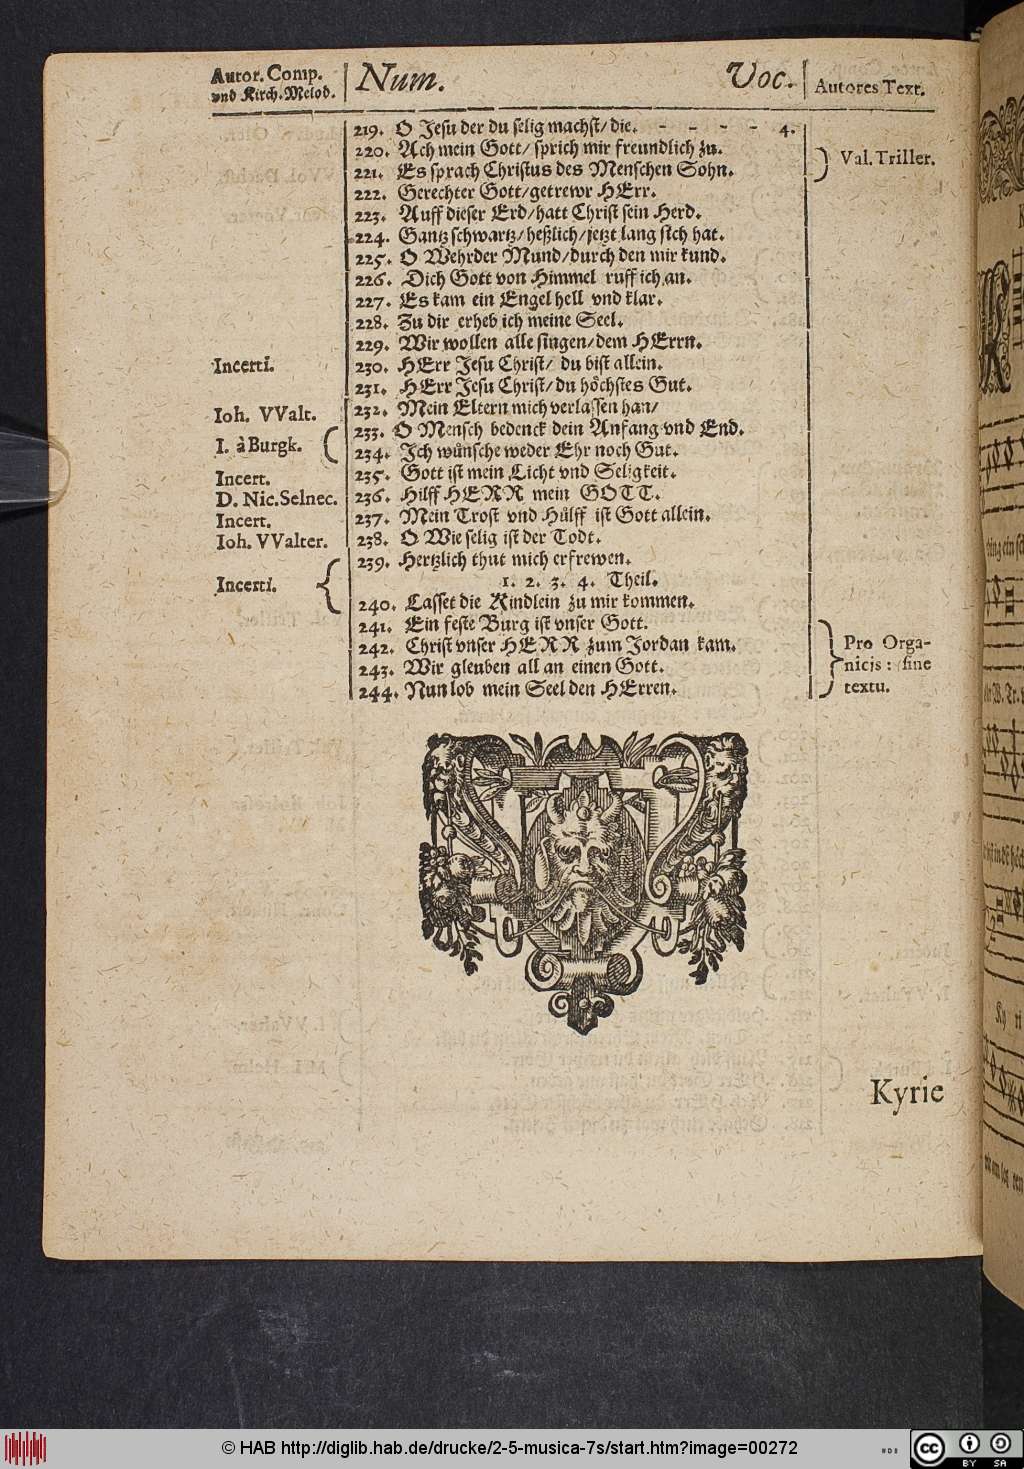 Autor. Comp. vnd Kirch. Melod. Num. Voc. Autores Text.
219. O Jesu der du selig machst/die. - - - - 4.
220. Ach mein Gott/ sprich mir freundlich zu.
Val. Triller.
221. Es sprach Christus des Menschen Sohn.
222. Gerechter Gott/getrewr HErr.
223. Auff dieser Erd/hatt Christ sein Herd.
224. Gantz schwartz/heßlich/jetzt lang sich hat.
225. O Wehrder Mund/durch den mir kund.
226. Dich Gott von Himmel ruff ich an.
227. Es kam ein Engel hell vnd klar.
228. Zu dir erheb ich meine Seel.
229. Wir wollen alle singen/dem HErrn.
Incerti. 230. HErr Jesu Christ/ du bist allein.
231. HErr Jesu Christ/du höchstes Gut.
Ioh. VValt. 232. Mein Eltern mich verlassen han/
233. O Mensch bedenck dein Anfang vnd End.
I. à Burgk. 234. Ich wünsche weder Ehr noch Gut.
Incert. 235. Gott ist mein Licht vnd Seligkeit.
D. Nic. Selnec. 236. Hilff HERR mein GOTT.
Incert. 237. Mein Trost vnd Hülff ist Gott allein.
Ioh. VValter. 238. O Wie selig ist der Todt.
239. Hertzlich thut mich erfrewen.
Incerti. 1. 2. 3. 4. Theil.
240. Lasset die Kindlein zu mir kommen.
241. Ein feste Burg ist vnser Gott.
242. Christ vnser HERR zum Jordan kam. Pro Orga-
243. Wir gleuben all an einen Gott. nicis: sine
244. Nun lob mein Seel den HErren. textu.
Kyrie
© HAB http://diglib.hab.de/drucke/2-5-musica-7s/start.htm?image=00272
cc BY SA